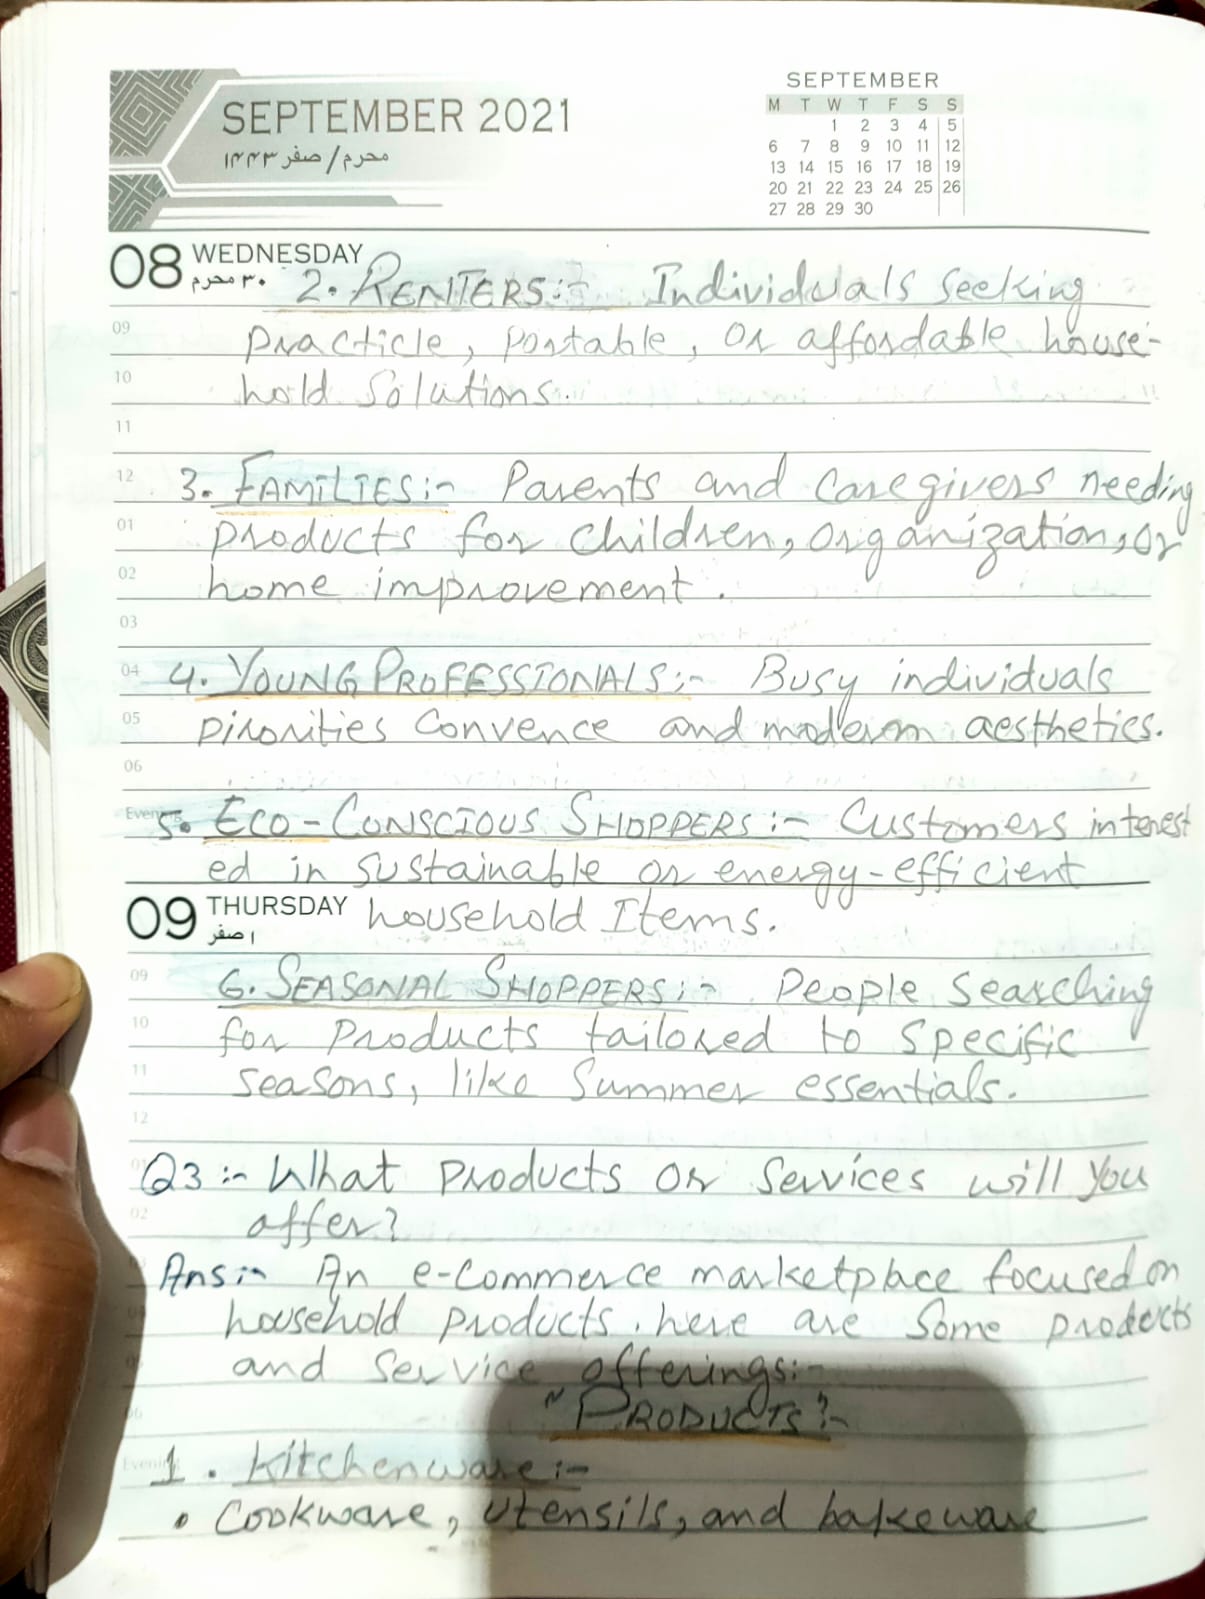 SEPTEMBER 2021
محرم/صفر ۱۴۴۳
SEPTEMBER
M T W T F S S
1 2 3 4 5
6 7 8 9 10 11 12
13 14 15 16 17 18 19
20 21 22 23 24 25 26
27 28 29 30
08 WEDNESDAY
۳۰ محرم
2. RENTERS:- Individuals seeking
09 practicle, portable, or affordable house-
10 hold Solutions.
11
12 3. FAMILIES:- Parents and caregivers needing
01 products for children, organization, or
02 home improvement.
03
04 4. YOUNG PROFESSIONALS:- Busy individuals
05 pirorities convence and modern aesthetics.
06
Evening 5. ECO-CONSCIOUS SHOPPERS:- Customers interest
ed in sustainable or energy-efficient
09 THURSDAY household Items.
۱ صفر
09 6. SEASONAL SHOPPERS:- People Searching
10 for products tailored to specific
11 seasons, like Summer essentials.
12
01 Q3:- What products or services will you
02 offer?
Ans:- An e-commerce marketplace focused on
household products. here are some products
and service offerings:-
06 "PRODUCTS":-
Evening 1. Kitchenware:-
• Cookware, utensils, and bakeware